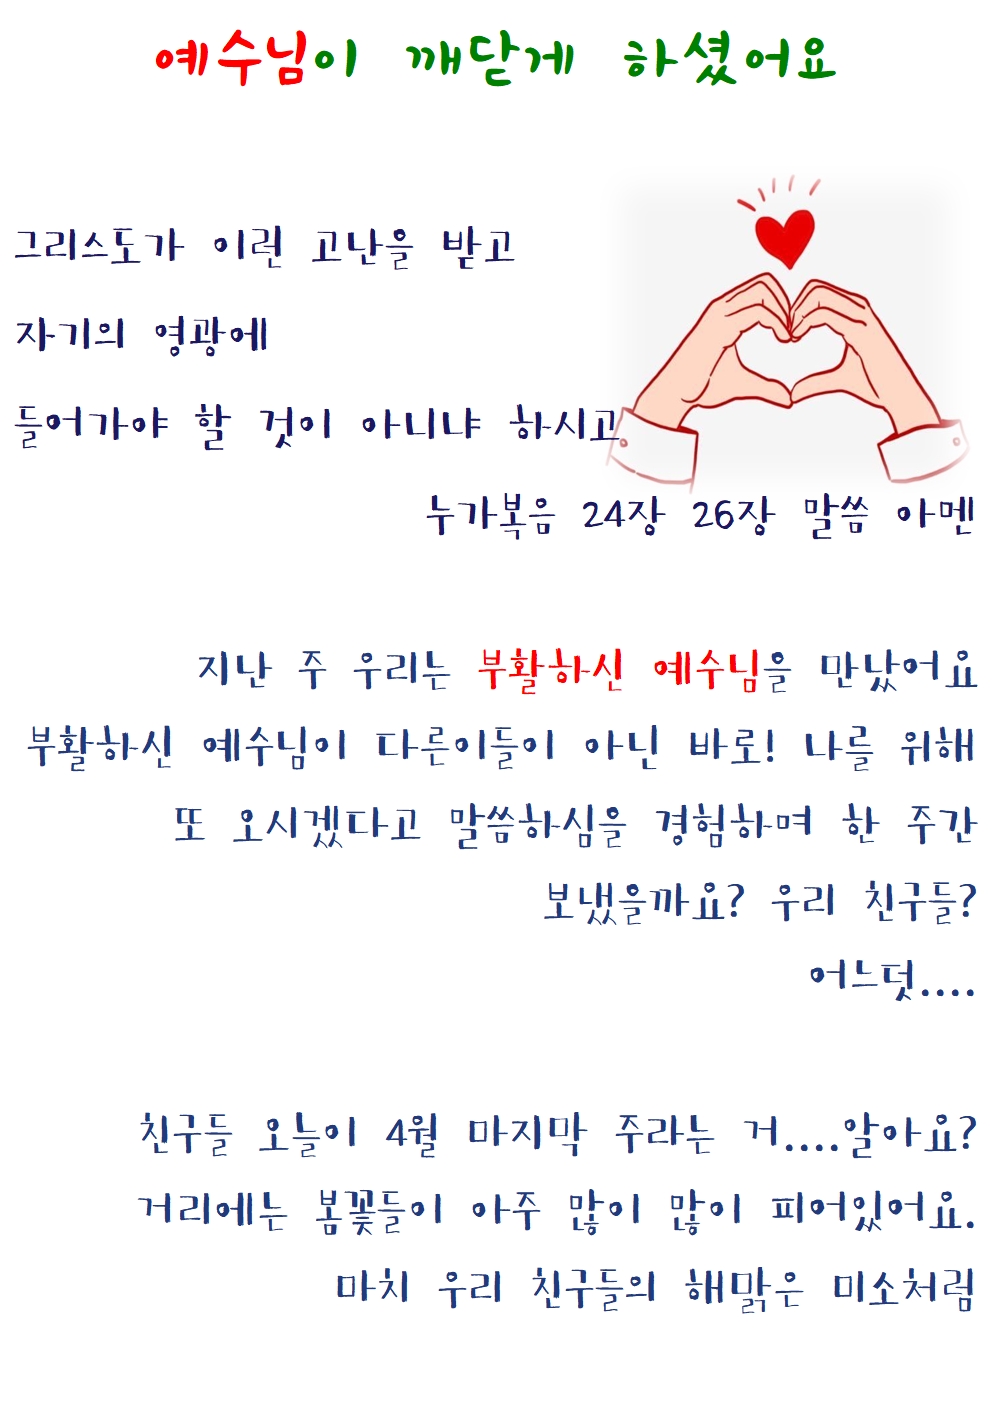 예수님이 깨닫게 하셨어요
그리스도가 이런 고난을 받고
자기의 영광에
들어가야 할 것이 아니냐 하시고
누가복음 24장 26장 말씀 아멘
지난 주 우리는 부활하신 예수님을 만났어요
부활하신 예수님이 다른이들이 아닌 바로! 나를 위해
또 오시겠다고 말씀하심을 경험하며 한 주간
보냈을까요? 우리 친구들?
어느덧....
친구들 오늘이 4월 마지막 주라는 거....알아요?
거리에는 봄꽃들이 아주 많이 많이 피어있어요.
마치 우리 친구들의 해맑은 미소처럼